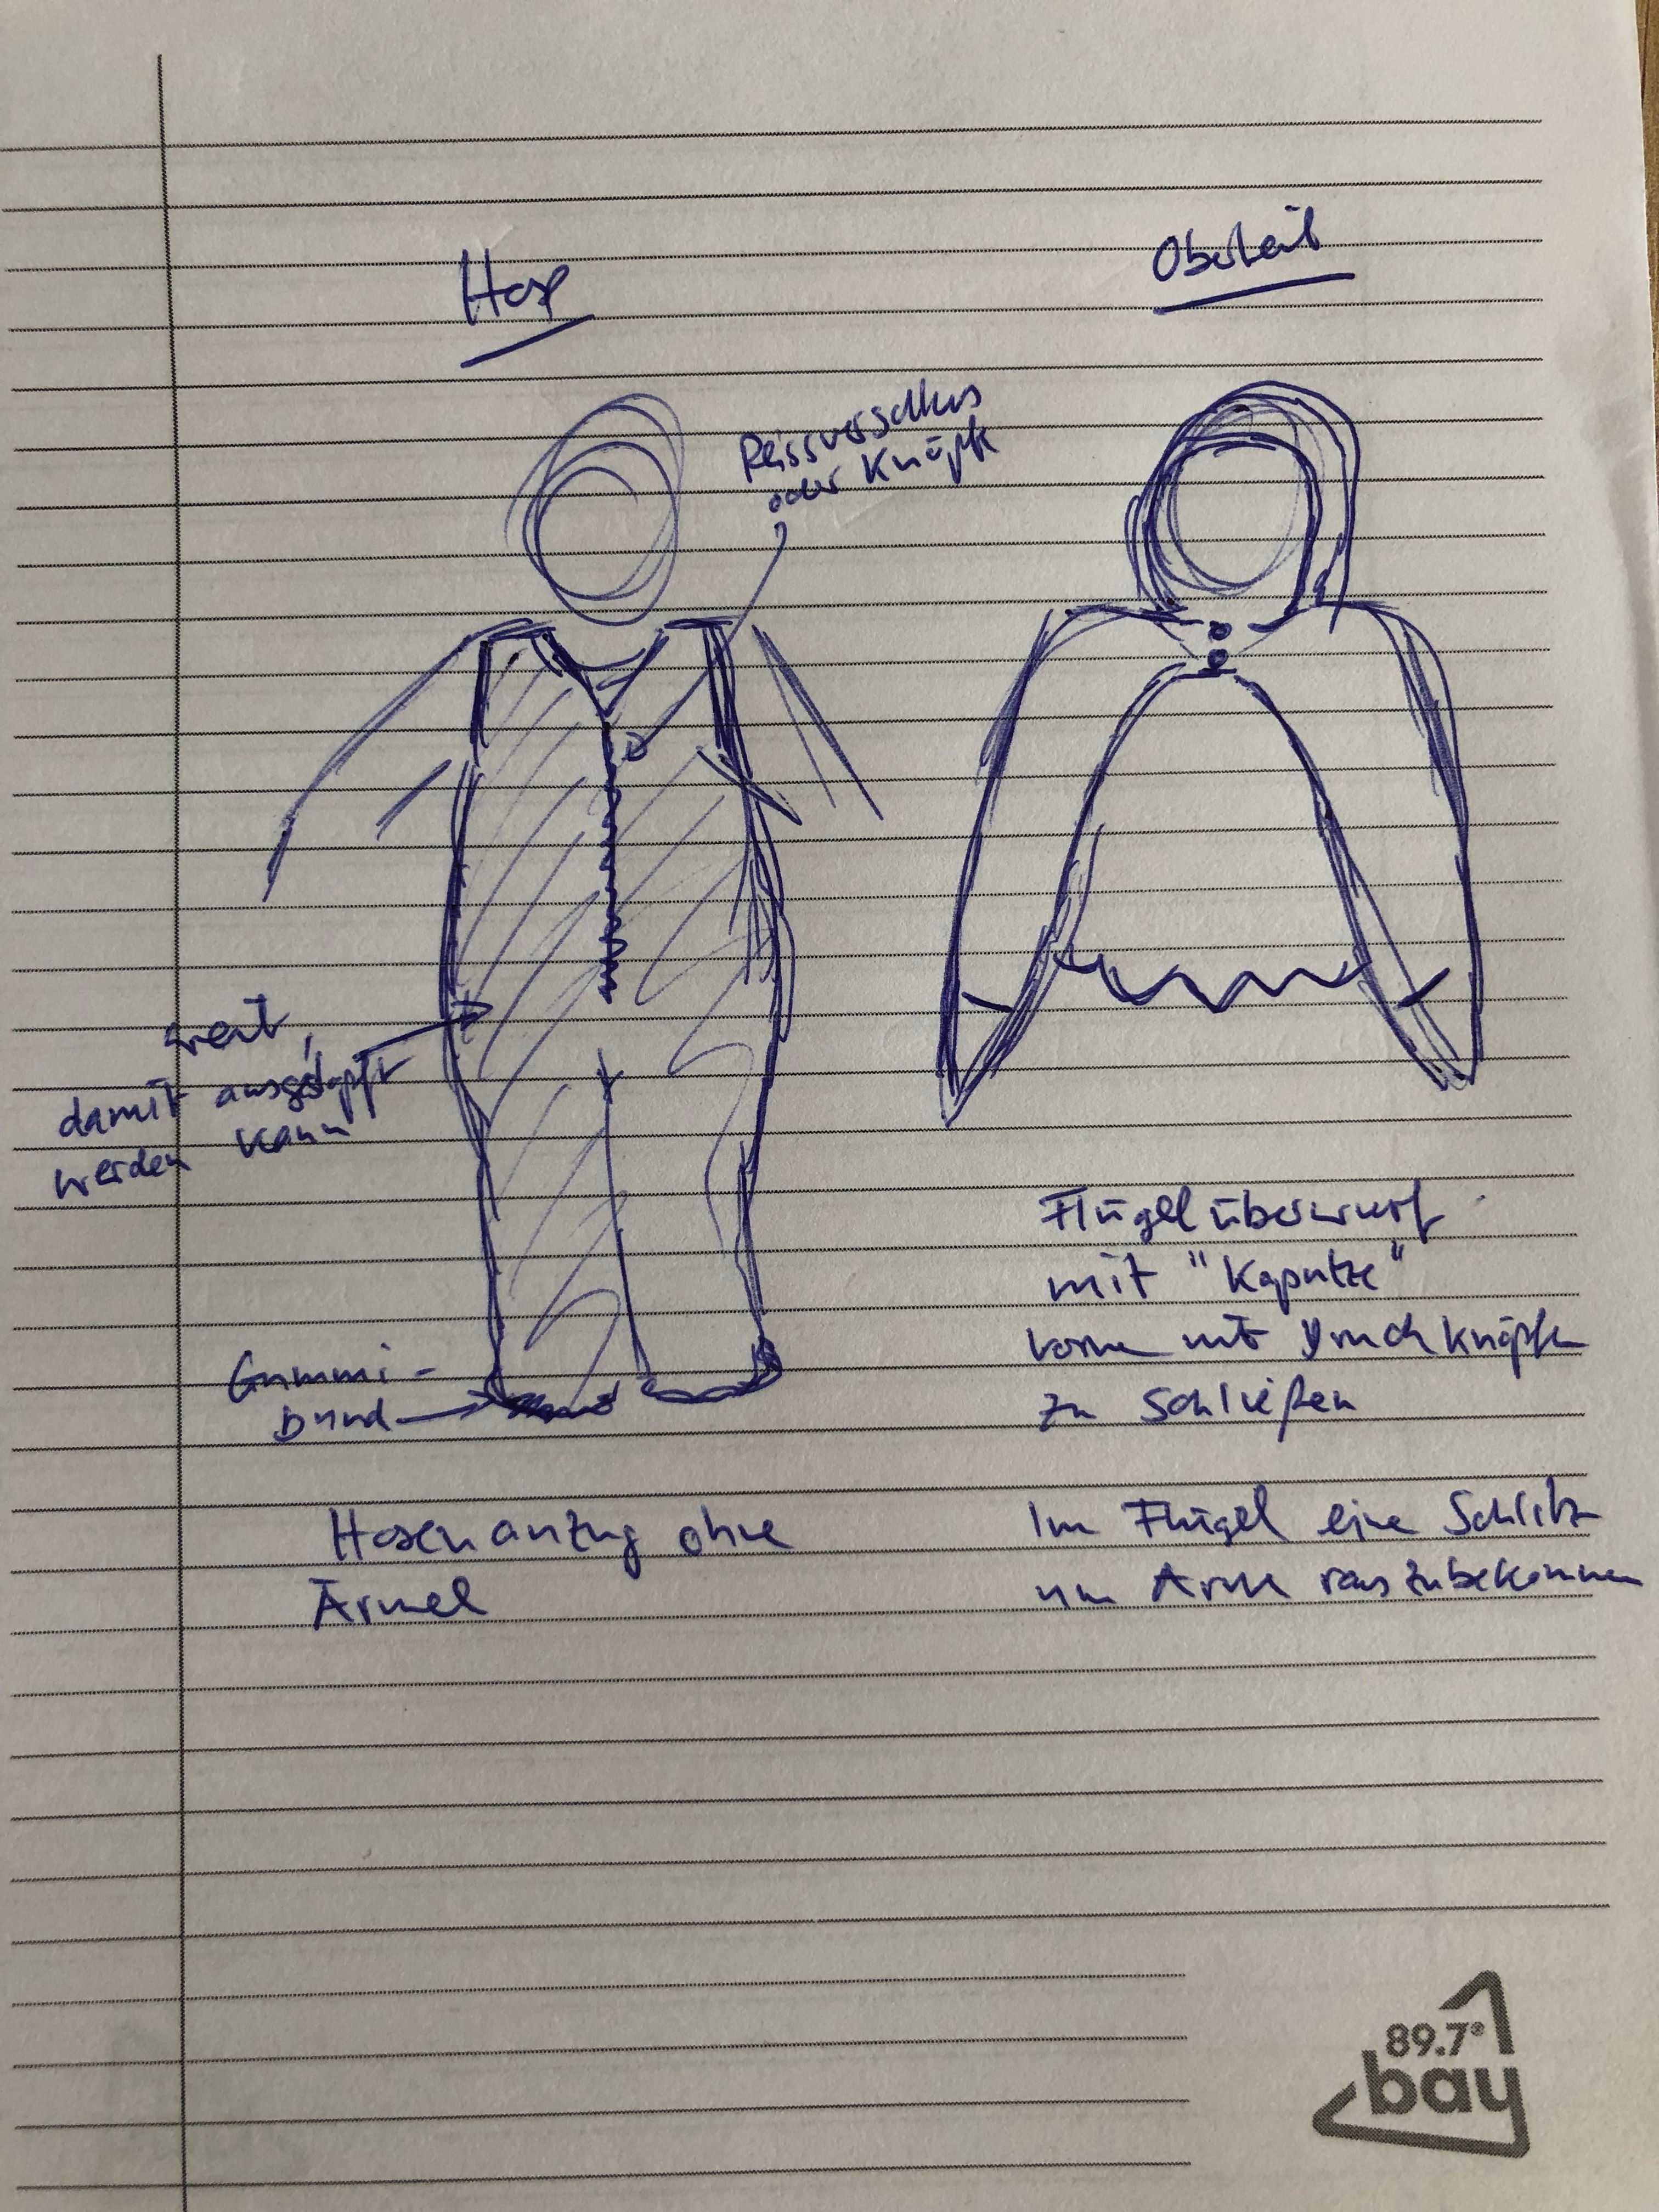 Hose
Oberteil
Reissverschluss
oder Knöpfe
weit,
damit ausgestopft
werden kann
Gummi-
Bund
Hosenanzug ohne
Ärmel
Flügelüberwurf
mit "Kaputze"
vorne mit Druckknöpfen
zu schließen
Im Flügel eine Schlitz
um Arme rauszubekommen
89.7°
bay